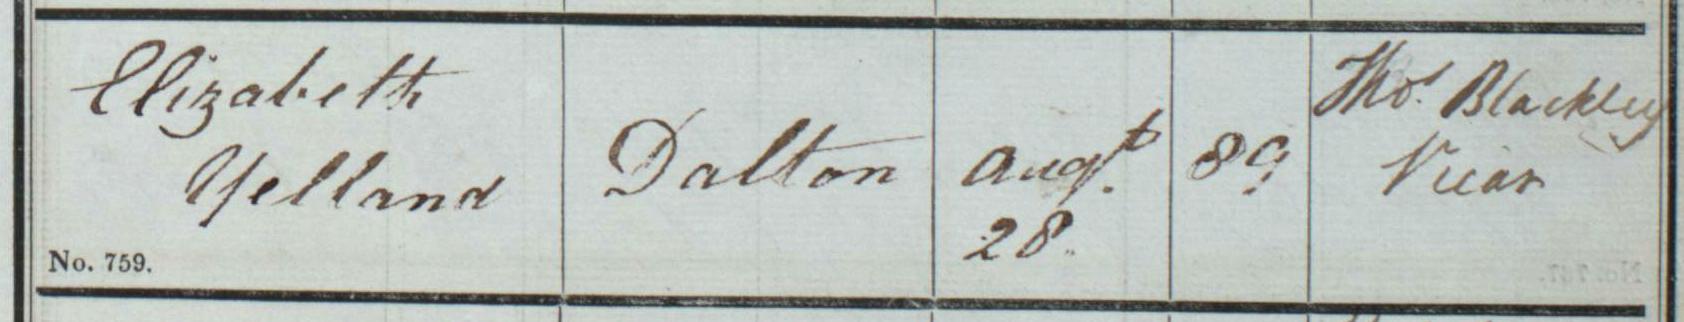 Elizabeth
Yelland
No. 759.
Dalton
Augt.
28.
89
Thos. Blackley
Vicar